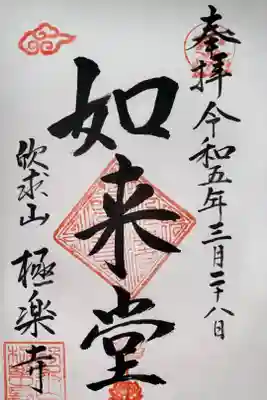 奉拝 令和五年三月二十八日
如来堂
吹求山 極楽寺